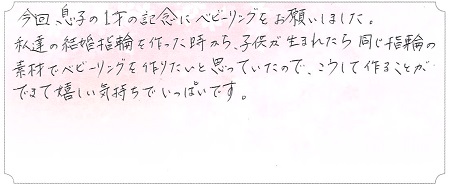 今回息子の1才の記念にベビーリングをお願いしました。
私達の結婚指輪を作った時から、子供が生まれたら同じ指輪の
素材でベビーリングを作りたいと思っていたので、こうして作ることが
できて嬉しい気持ちでいっぱいです。